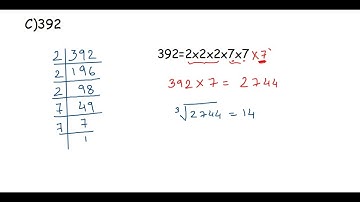 C)392
2 | 392
2 | 196
2 | 98
7 | 49
7 | 7
1
392=2x2x2x7x7 x 7
392 x 7 = 2744
³√2744 = 14